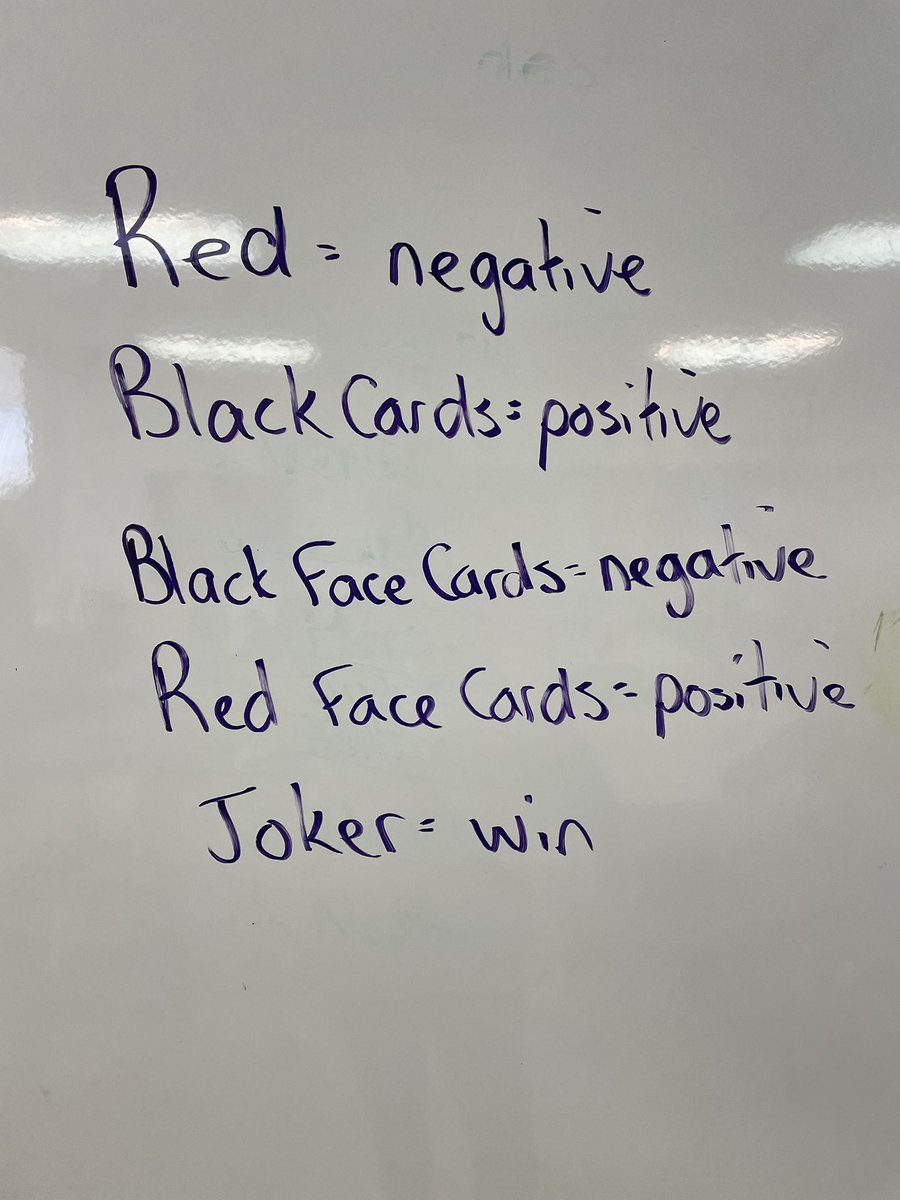 Red = negative
Black Cards = positive
Black Face Cards = negative
Red Face Cards = positive
Joker = win